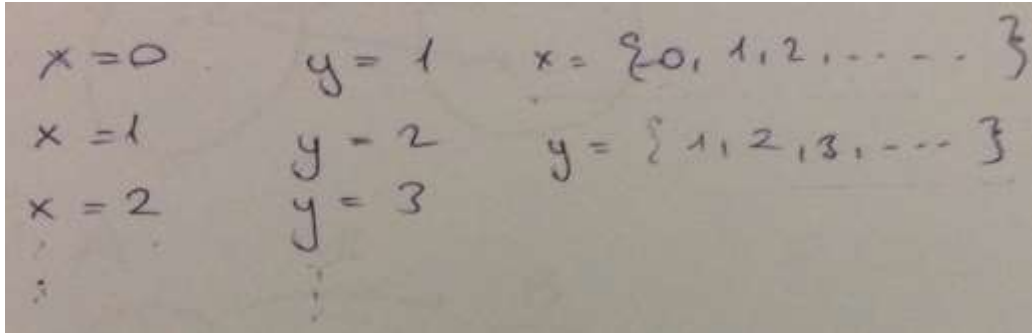 x = 0 y = 1 x = {0, 1, 2, ..... }
x = 1 y = 2 y = {1, 2, 3, .... }
x = 2 y = 3